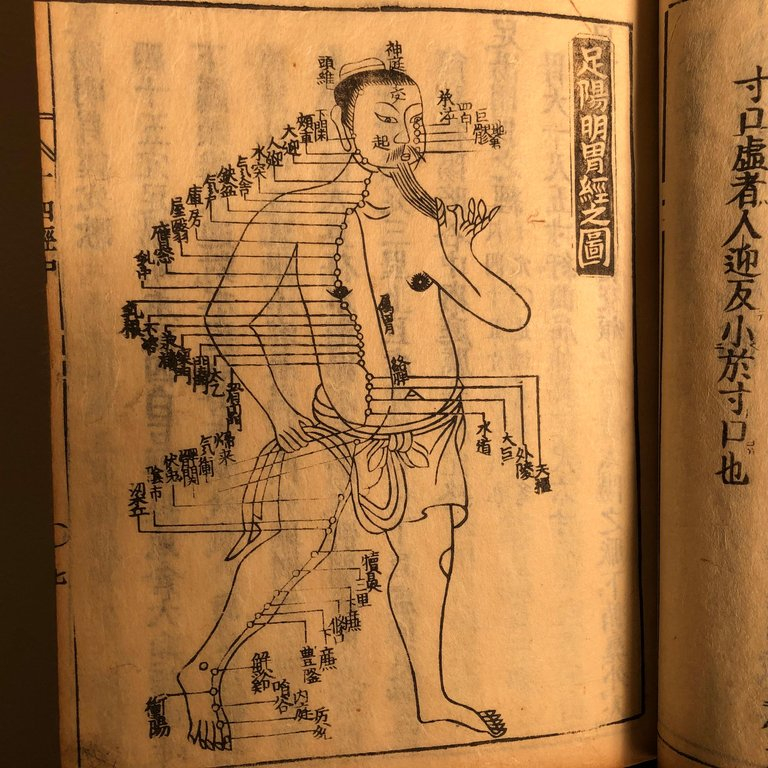 寸口虛者人迎反小於寸口也
足陽明胃經之圖
神庭
頭維
交
起
承泣
四白
巨髎
地倉
下関
頬車
大迎
人迎
水突
気舎
鈌盆
気戸
庫房
屋翳
膺窓
乳中
乳根
不容
承満
梁門
関門
太乙
滑肉門
屬胃
絡脾
天樞
外陵
大巨
水道
歸来
気衝
髀関
伏兎
陰市
梁丘
犢鼻
三里
上廉
條口
下廉
豊隆
解谿
衝陽
陷谷
内庭
厉兌
十四經中
七